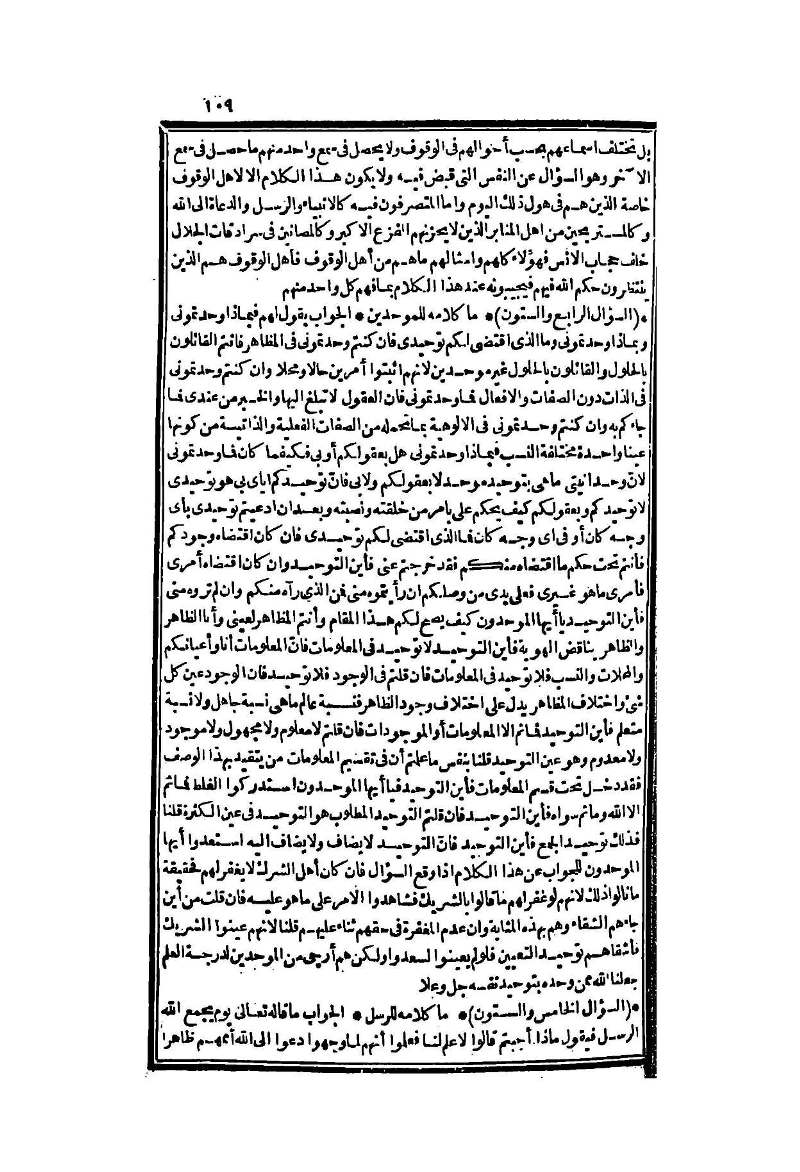 ١٠٩
بل تختلف اسماعهم بحسب أحوالهم فى الوقوف ولا يحصل فى سمع واحد منهم ما حصل فى سمع
الآخر وهو السؤال عن النفس التى قبض فيه ولا يكون هذا الكلام الا لاهل الوقوف
خاصة الذين هم فى هول ذلك اليوم واما المتصرفون فيه كالانبياء والرسل والدعاة الى الله
وكالمستريحين من اهل المنابر الذين لا يحزنهم الفزع الاكبر وكالمصانين فى سرادقات الجلال
خلف حجاب الانس فهؤلاء كلهم وامثالهم ما هم من أهل الوقوف فأهل الوقوف هم الذين
ينتظرون حكم الله فيهم فيجيبونه عند هذا الكلام بما فهم كل واحد منهم
•(السؤال الرابع والستون)• ما كلامه للموحدين • الجواب يقول لهم فيما ذا وحدتمونى
وبما ذا وحدتمونى وما الذى اقتضى لكم توحيدى فان كنتم وحدتمونى فى المظاهر فانتم القائلون
بالحلول والقائلون بالحلول غير موحدين لانهم اثبتوا أمرين حالا ومحلا وان كنتم وحدتمونى
فى الذات دون الصفات والافعال فما وحدتمونى فان العقول لا تبلغ اليها والخبر من عندى فما
جاءكم به وان كنتم وحدتمونى فى الالوهية بما تحمله من الصفات الفعلية والذاتية من كونها
عينا واحدة مختلفة النسب فبما ذا وحدتمونى هل بعقولكم أو بى فكيفما كان فما وحدتمونى
لان وحدانيتى ما هى بتوحيد موحد لا بعقولكم ولا بى فان توحيدكم اياى بى هو توحيدى
لا توحيدكم وبعقولكم كيف يحكم على بامر من خلقته ونصبته وبعد ان ادعيتم توحيدى بأى
وجه كان أو فى أى وجه كان فما الذى اقتضى لكم توحيدى فان كان اقتضاه وجودكم
فأنتم تحت حكم ما اقتضاه منكم فقد خرجتم عنى فأين التوحيد وان كان اقتضاه أمرى
فأمرى ما هو غيرى فعلى يدى من وصلكم ان رأيتموه منى فمن الذى رآه منكم وان لم تروه منى
فأين التوحيد يا أيها الموحدون كيف يصح لكم هذا المقام وأنتم المظاهر لعينى وأنا الظاهر
والظاهر يناقض الهوية فأين التوحيد لا توحيد فى المعلومات فان المعلومات أنا وأعيانكم
والمحالات والنسب فلا توحيد فى المعلومات فان قلتم فى الوجود فلا توحيد فان الوجود عين كل
شئ واختلاف المظاهر يدل على اختلاف وجود الظاهر فنسبة عالم ما هى نسبة جاهل ولا نسبة
متعلم فأين التوحيد فما ثم الا المعلومات أو الموجودات فان قلتم لا معلوم ولا مجهول ولا موجود
ولا معدوم وهو عين التوحيد قلنا بنفس ما علمتم أن فى تقسيم المعلومات من يتقيد بهذا الوصف
فقد دخل تحت قسم المعلومات فأين التوحيد فيا أيها الموحدون استدركوا الغلط فما ثم
الا الله وما ثم سواه فأين التوحيد فان قلتم التوحيد المطلوب هو التوحيد فى عين الكثرة قلنا
فذلك توحيد الجمع فأين التوحيد فان التوحيد لا يضاف ولا يضاف اليه استعدوا أيها
الموحدون للجواب عن هذا الكلام اذا وقع السؤال فان كان أهل الشرك لا يغفر لهم فحقيقة
ما نالوا ذلك لانهم لو غفر لهم ما قالوا بالشريك فشاهدوا الامر على ما هو عليه فان قلت من أين
جاءهم الشقاء وهم بهذه المثابة وان عدم المغفرة فى حقهم ثناء عليهم قلنا لانهم عينوا الشريك
فأشقاهم توحيد التعيين فلو لم يعينوا لسعدوا ولكن هم أرجى من الموحدين لدرجة العلم
جعلنا الله ممن وحده بتوحيد نفسه جل وعلا
•(السؤال الخامس والستون)• ما كلامه للرسل • الجواب ما قاله تعالى يوم يجمع الله
الرسل فيقول ماذا أجبتم قالوا لا علم لنا فعلموا أنهم لما وجهوا دعوا الى الله أممهم ظاهرا